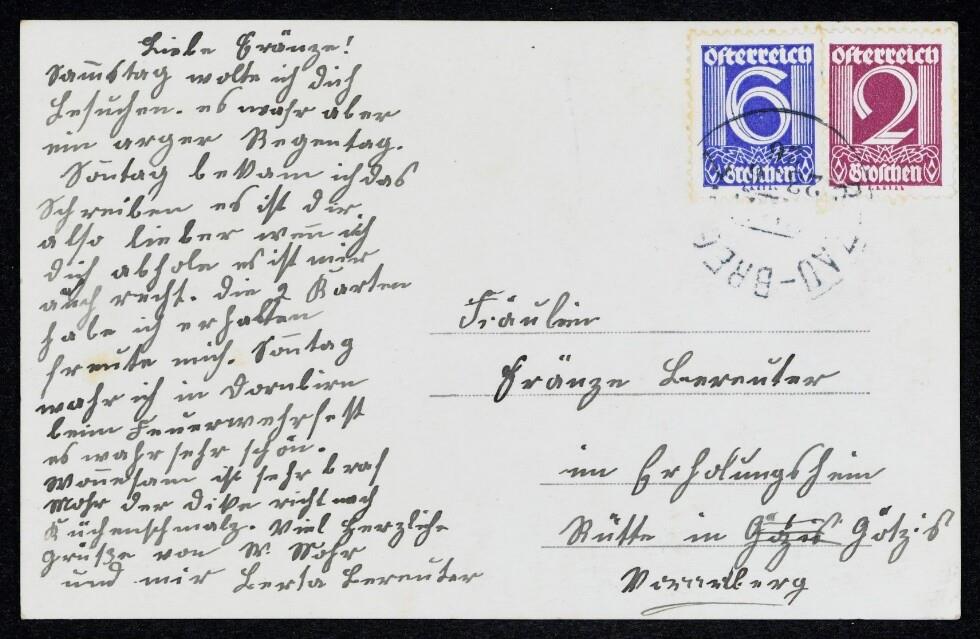 Liebe Fränze!
Sam̄stag wolte ich dich
besuchen. es wahr aber
ein arger Regentag.
Son̄tag bekam ich das
Schreiben es ist dir
also lieber wen̄ ich
dich abhole es ist mir
auch recht. die 2 Karten
habe ich erhalten
freute mich. Son̄tag
wahr ich in Dornbirn
beim Feuerwehrfest
es wahr sehr schön.
ist sehr braf
Mohr der dike richt nach
Küchenschmalz. Viel herzliche
Grüße von W Mohr
und mir Berta Bereuter
Österreich
6
Groschen
Österreich
2
Groschen
AU-BREG
Fräulein
Fränze Bereuter
im Erholungsheim
Rütte in Götzis
Vorarlberg